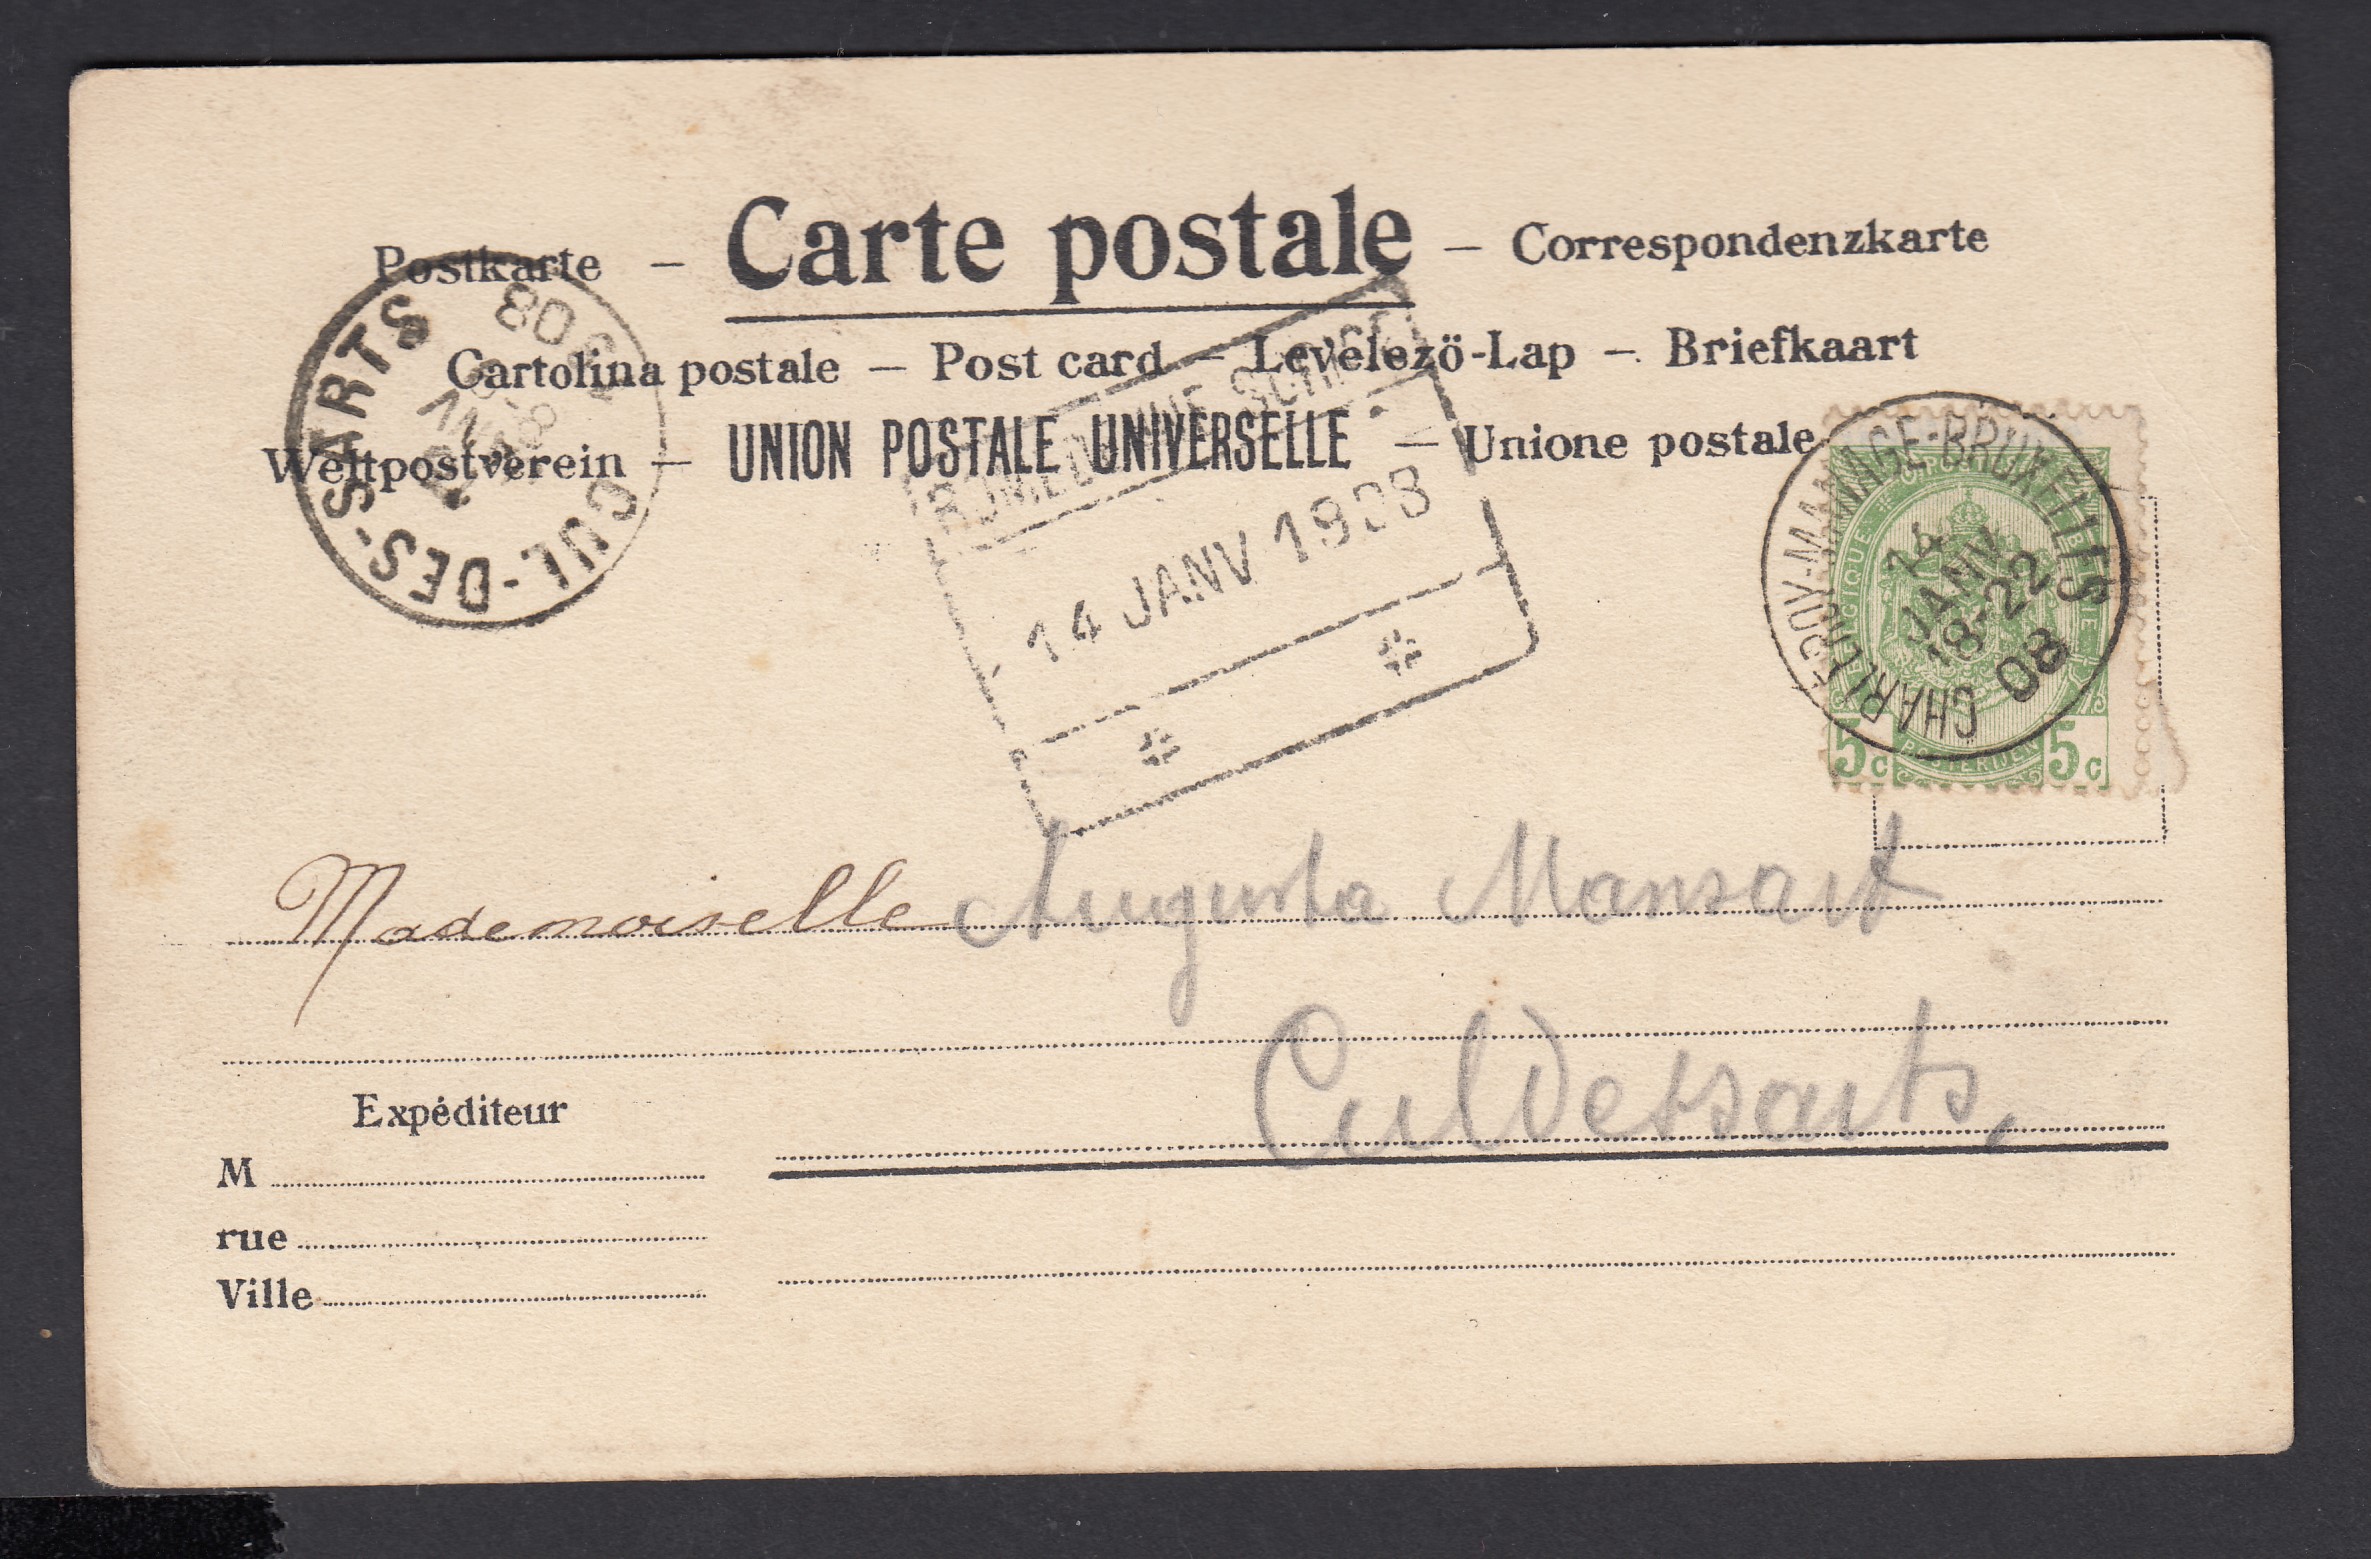 Postkarte – Carte postale – Correspondenzkarte
Cartolina postale – Post card – Levelezö-Lap – Briefkaart
Weltpostverein – UNION POSTALE UNIVERSELLE – Unione postale
CUL-DES-SARTS
08
14 JANV 1908
CHARLEROY-MANAGE-BRUXELLES
14
JANV
18-22
08
BELGIQUE
POSTERIJEN
5c 5c
Mademoiselle Augusta Mansart
Culdessarts,
Expéditeur
M
rue
Ville